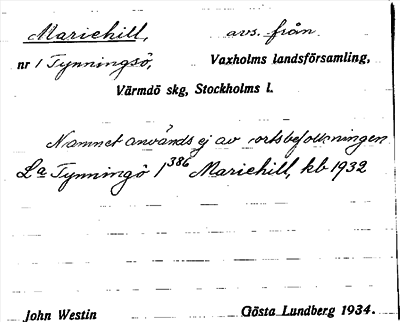 Mariehill, avs. från
nr 1 Tynningsö, Vaxholms landsförsamling,
Värmdö skg, Stockholms l.
Namnet används ej av ortsbefolkningen
La Tynningö 1³⁸⁶ Mariehill, kb 1932
John Westin Gösta Lundberg 1934.